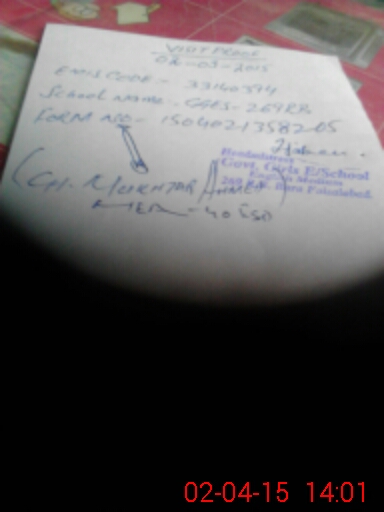 VISIT PROOF
02-03-2015
EMIS CODE - 33140394
School name - GGES - 269 RB
FORM NO - 15040213582-05
Headmistress
Govt. Girls E/School
English Medium
269 R.B. Faisalabad.
(CH. MUKHTAR AHMED)
02-04-15 14:01